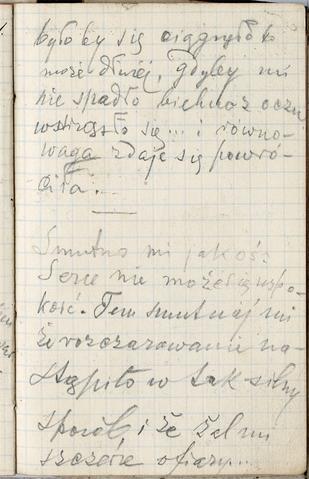 byłoby się ciągnęło to
może dłużej, gdyby mi
nie spadło bielmo z oczu
wstrzęsło się... i równo-
waga zdaje się powró-
ciła.
Smutno mi jakoś.
Serce nie może się uspo-
koić. Tem smutniej mi
że rozczarowanie na-
stąpiło w tak silny
sposób, i że żal mi
szczerze ofiary...